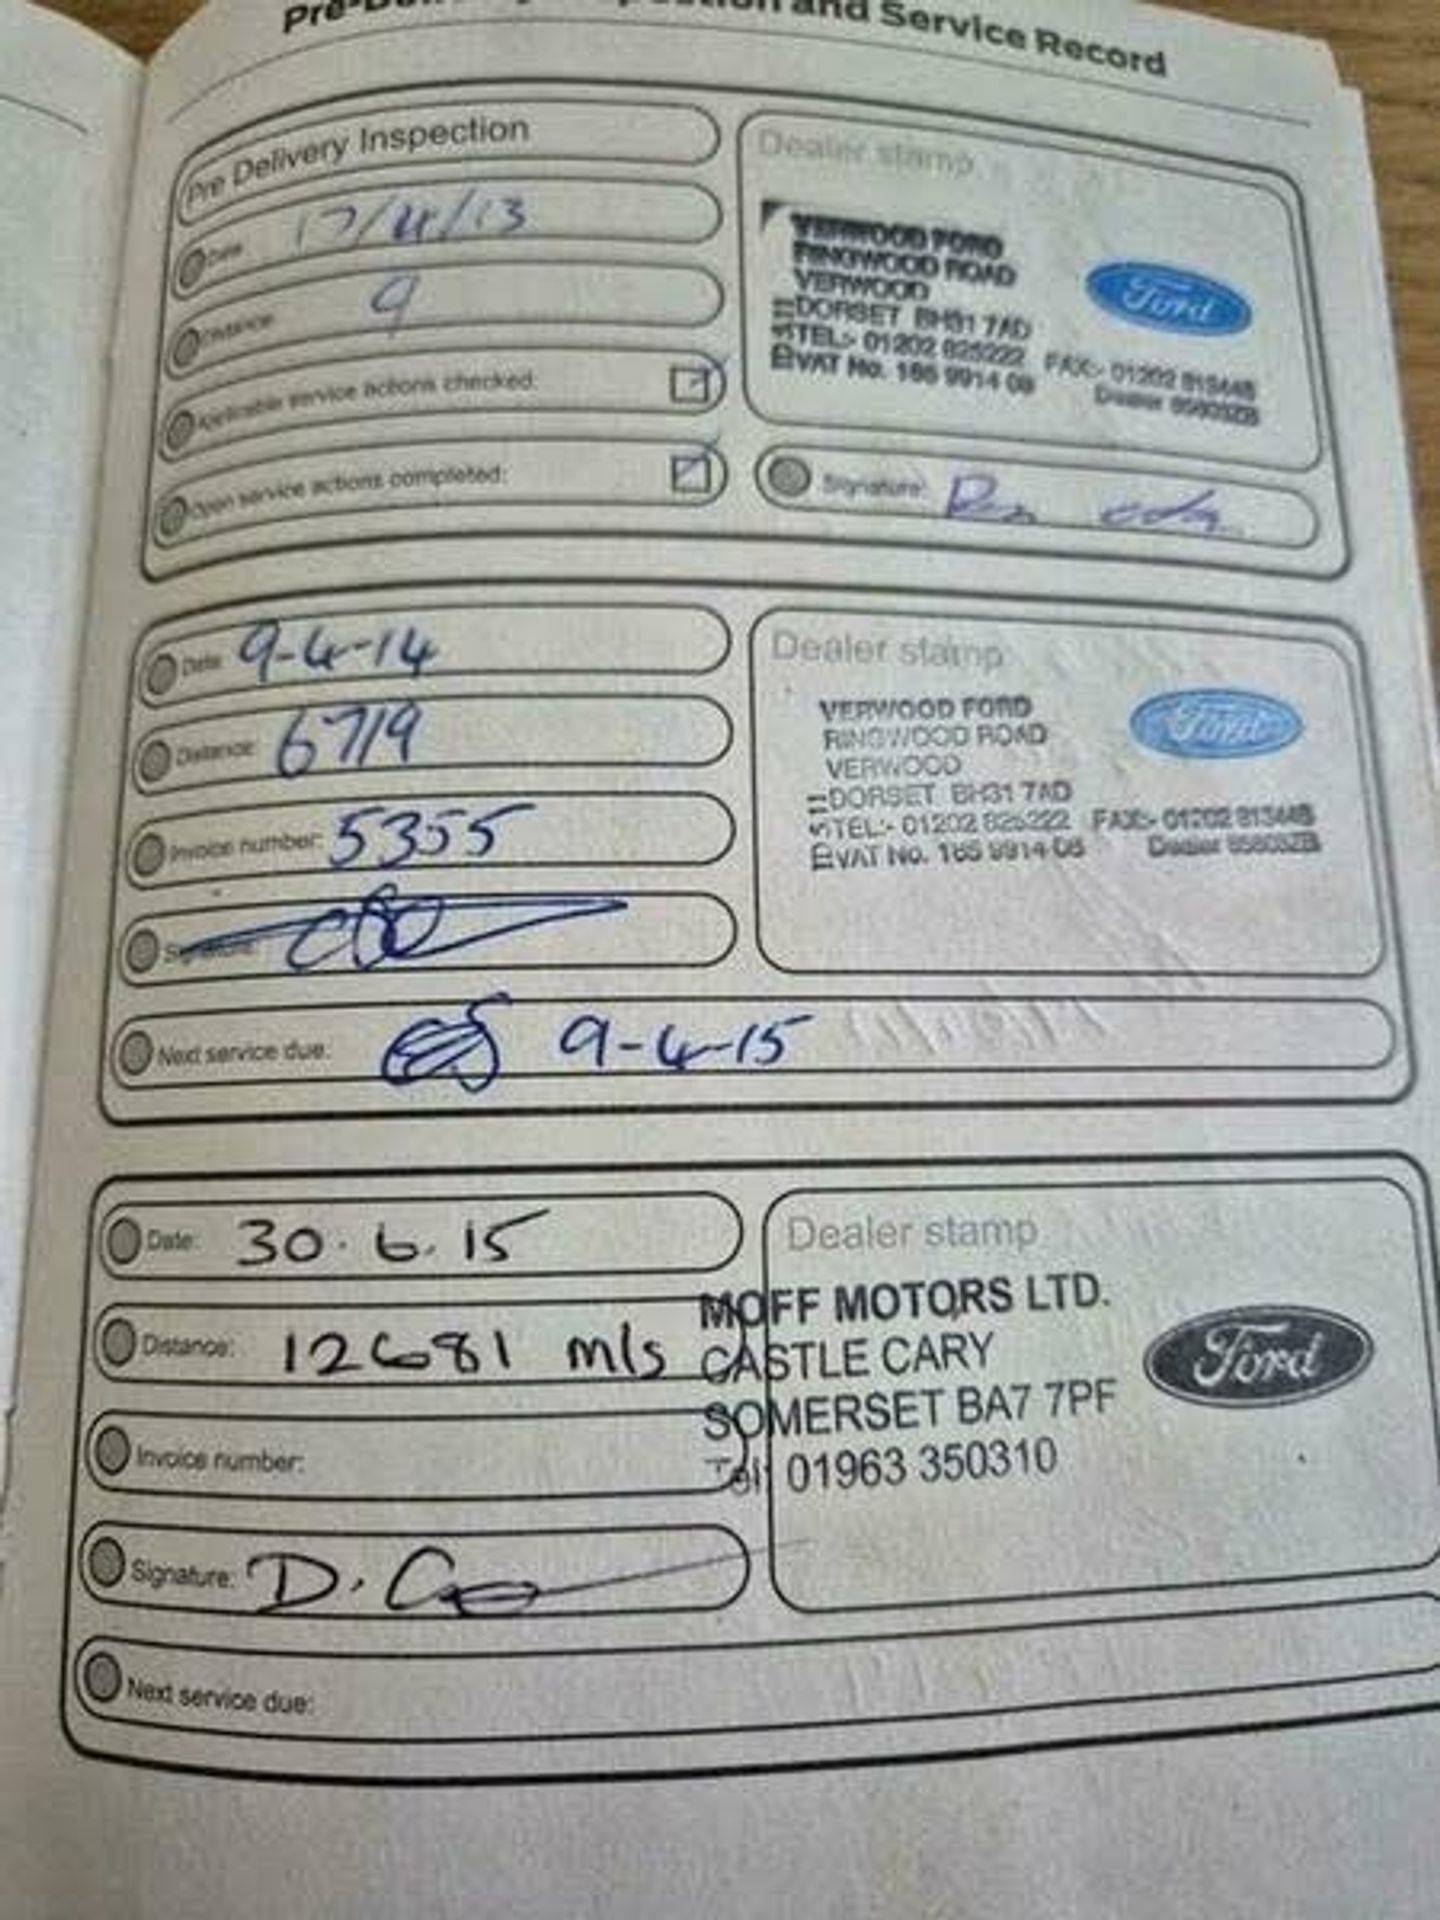 Pre-Delivery Inspection and Service Record
Pre Delivery Inspection
Date: 17/4/13
Distance: 9
Applicable service actions checked:
Open service actions completed:
Dealer stamp
VERWOOD FORD
RINGWOOD ROAD
VERWOOD
DORSET BH31 7AD
TEL:- 01202 825222 FAX:- 01202 813448
VAT No. 185 9914 08 Dealer
Ford
Signature:
Date: 9-4-14
Distance: 6719
Invoice number: 5355
Signature:
Next service due: 9-4-15
Dealer stamp
VERWOOD FORD
RINGWOOD ROAD
VERWOOD
DORSET BH31 7AD
TEL:- 01202 825222 FAX:- 01202 813448
VAT No. 185 9914 08 Dealer
Ford
Date: 30.6.15
Distance: 12681 mls
Invoice number:
Signature: D.
Next service due:
Dealer stamp
MOFF MOTORS LTD.
CASTLE CARY
SOMERSET BA7 7PF
Tel: 01963 350310
Ford